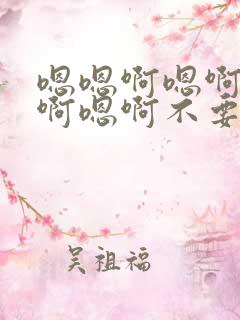 嗯嗯啊嗯啊
啊嗯啊不要
吴祖福